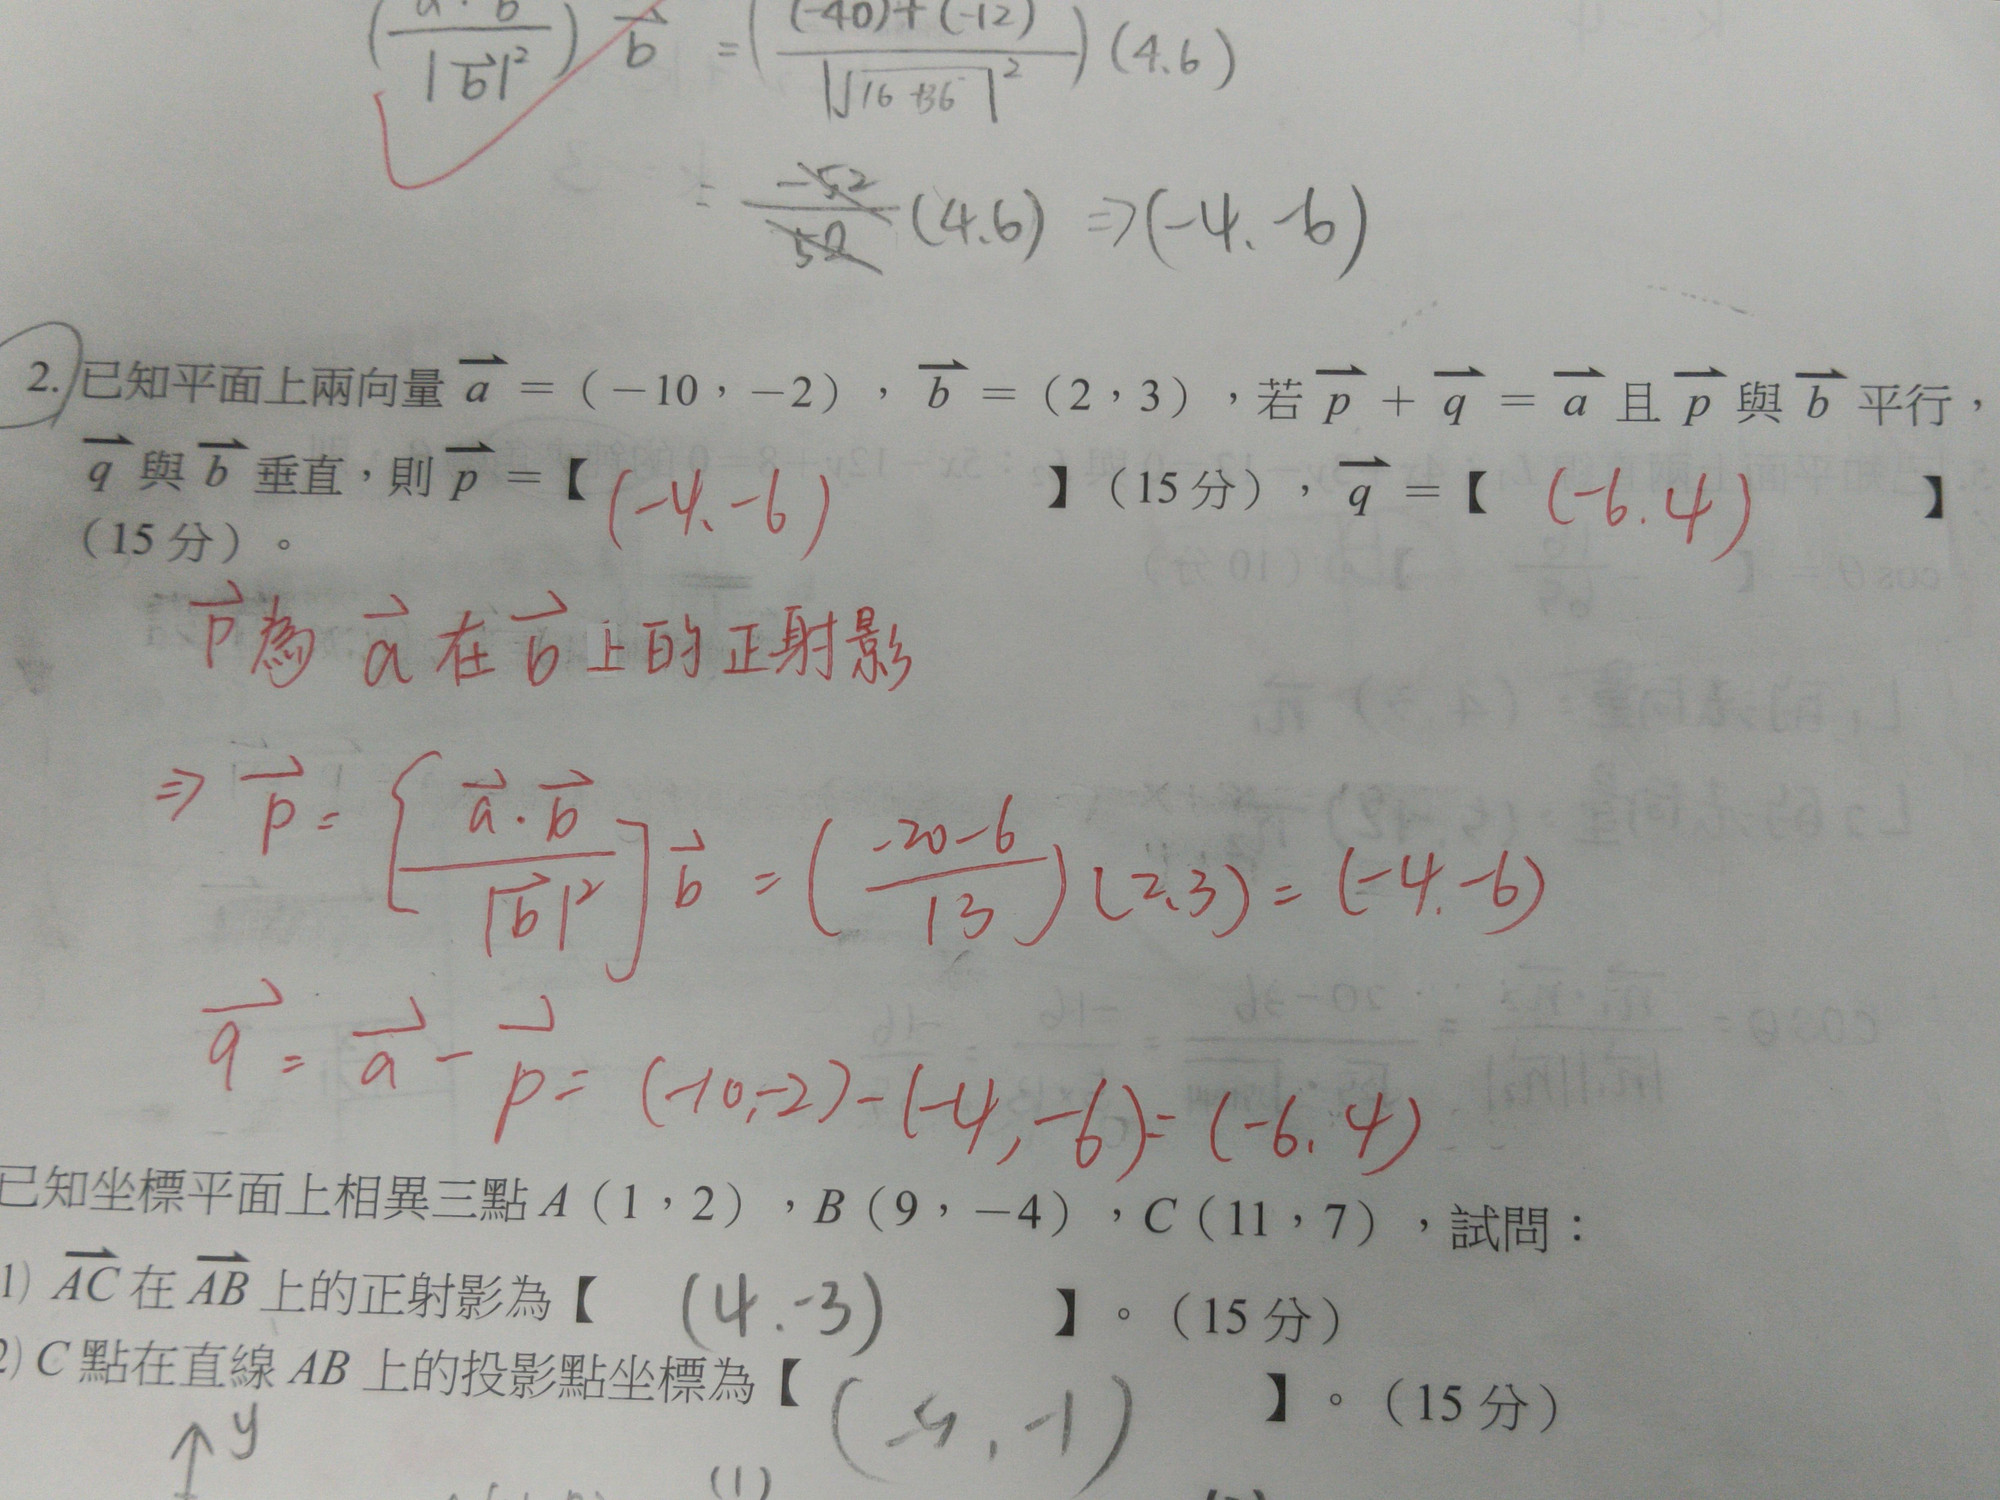 (a·b/|b|²) b = ((-40)+(-12)/|√16+36|²) (4.6)
= -52/52 (4.6) ⇒ (-4. -6)
2. 已知平面上兩向量 a =(-10,-2),b =(2,3),若 p + q = a 且 p 與 b 平行,
q 與 b 垂直,則 p =【 (-4、-6) 】(15 分),q =【 (-6.4) 】
(15 分)。
p 為 a 在 b 上的正射影
⇒ p = [a·b/|b|²] b = (-20-6/13) (2,3) = (-4.-6)
q = a - p = (-10,-2)-(-4,-6)= (-6.4)
已知坐標平面上相異三點 A(1,2),B(9,-4),C(11,7),試問:
1) AC 在 AB 上的正射影為【 (4.-3) 】。(15 分)
2) C 點在直線 AB 上的投影點坐標為【 ( , -1) 】。(15 分)
↑y
(1)